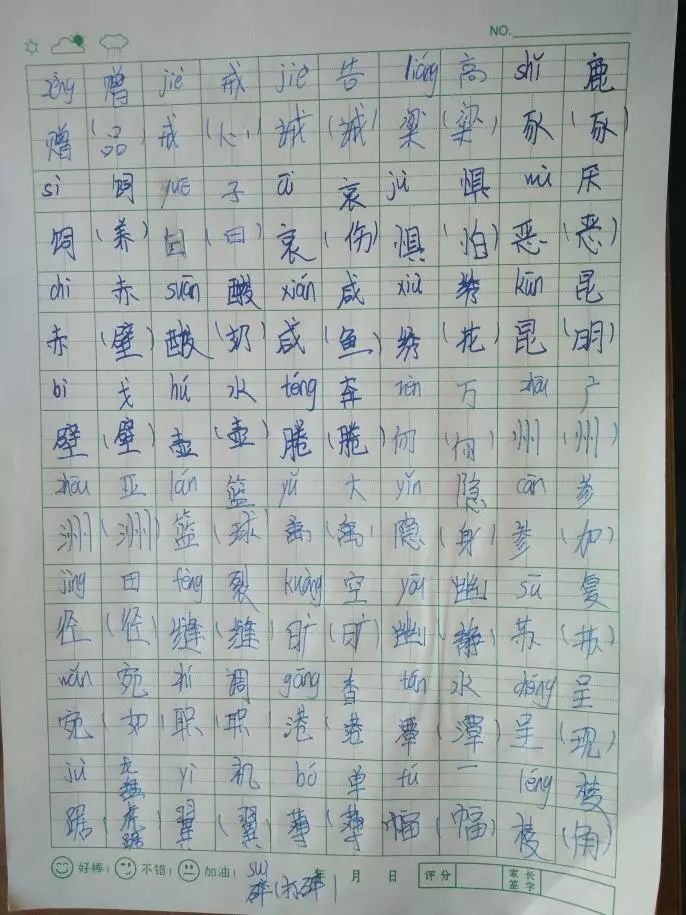 NO.
zèng 赠 jiè 戒 jiè 告 liáng 高 shǐ 鹿
赠 (品) 戒 (心) 诫 (诫) 梁 (梁) 豕 (豕)
sì 饲 yuē 子 āi 哀 jù 惧 wù 厌
饲 (养) 曰 (曰) 哀 (伤) 惧 (怕) 恶 (恶)
chì 赤 suān 酸 xián 咸 xiù 绣 kūn 昆
赤 (壁) 酸 (奶) 咸 (鱼) 绣 (花) 昆 (明)
bì 戈 hú 水 téng 奔 rèn 万 zhōu 广
壁 (壁) 壶 (壶) 腾 (腾) 仞 (仞) 州 (州)
zhōu 亚 lán 篮 yǔ 大 yǐn 隐 cān 参
洲 (洲) 篮 (球) 禹 (禹) 隐 (身) 参 (加)
jìng 田 fèng 裂 kuàng 空 yōu 幽 sū 复
径 (径) 缝 (缝) 旷 (旷) 幽 (静) 苏 (苏)
wǎn 宛 zhí 调 gǎng 香 tán 水 chéng 呈
宛 (如) 职 (职) 港 (港) 潭 (潭) 呈 (现)
jù 龙盘 yì 机 bó 单 fú 一 léng 棱
踞 (虎踞) 翼 (翼) 薄 (薄) 幅 (幅) 棱 (角)
好棒! 不错! 加油! suì 年 月 日 评分 家长签字
碎(打碎)